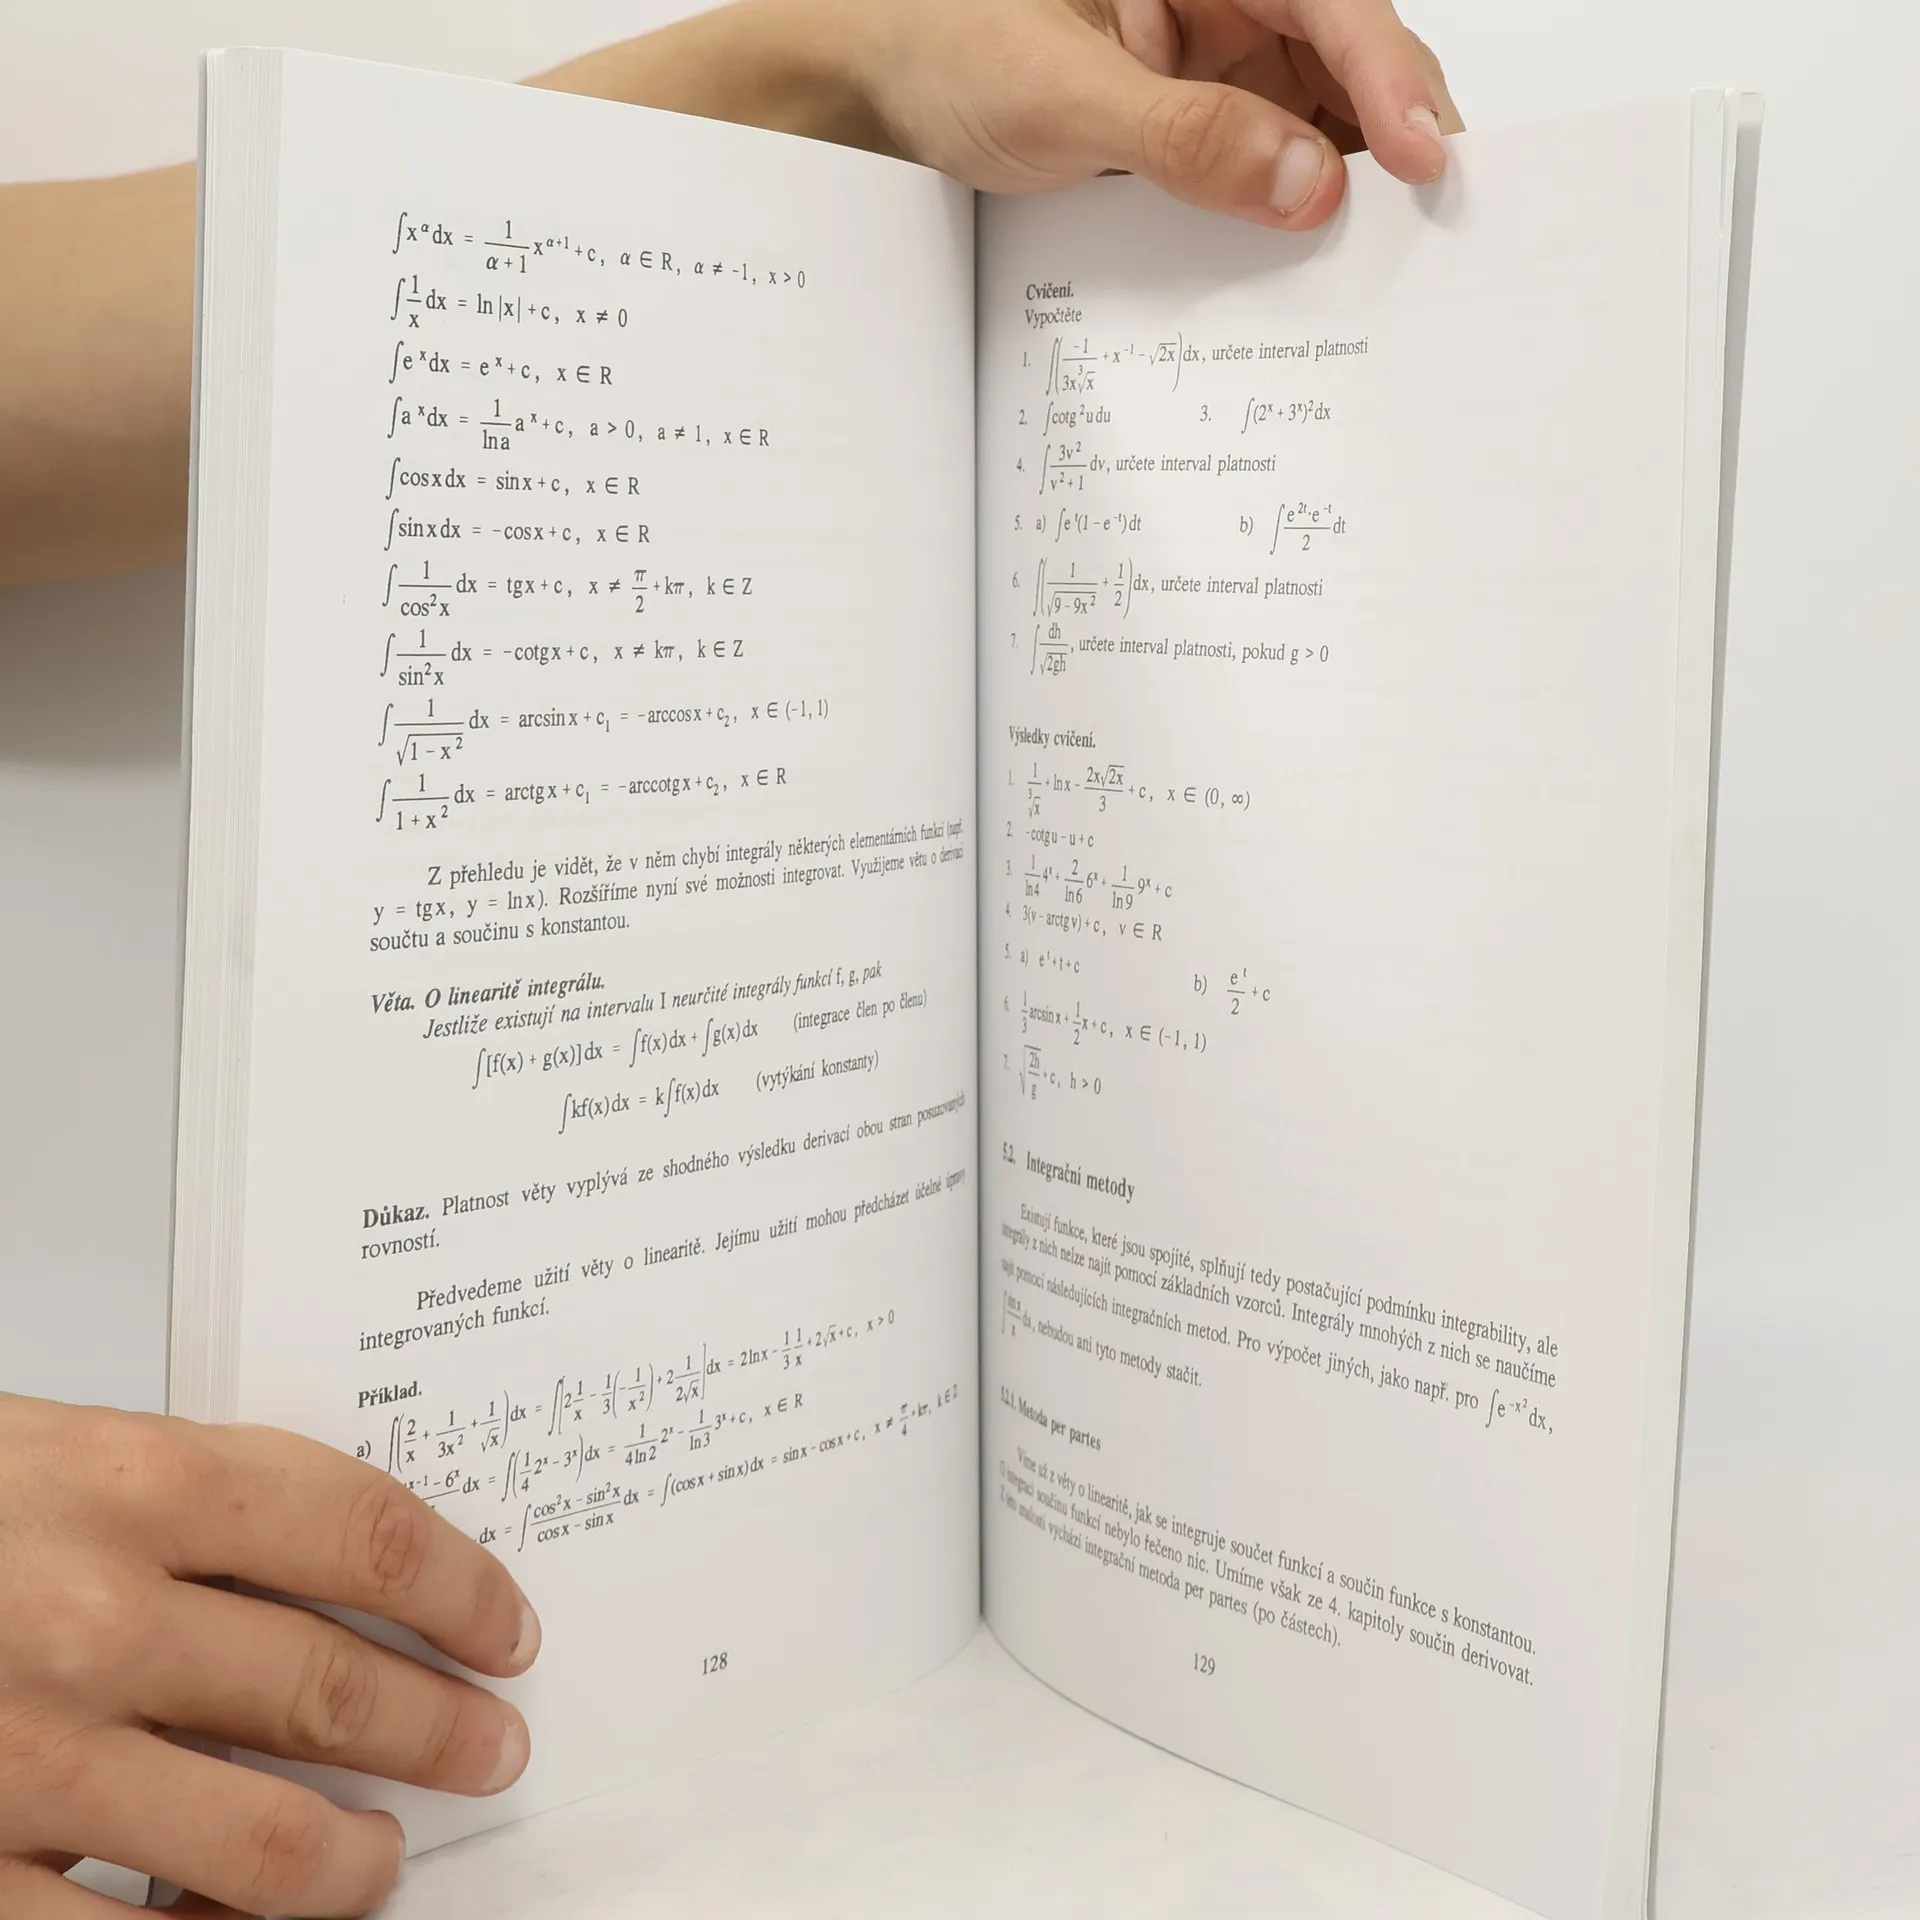 ∫x^α dx = 1/(α+1) x^(α+1) + c, α ∈ R, α ≠ -1, x > 0
∫1/x dx = ln|x| + c, x ≠ 0
∫e^x dx = e^x + c, x ∈ R
∫a^x dx = 1/(ln a) a^x + c, a > 0, a ≠ 1, x ∈ R
∫cos x dx = sin x + c, x ∈ R
∫sin x dx = -cos x + c, x ∈ R
∫1/(cos²x) dx = tg x + c, x ≠ π/2 + kπ, k ∈ Z
∫1/(sin²x) dx = -cotg x + c, x ≠ kπ, k ∈ Z
∫1/√(1-x²) dx = arcsin x + c₁ = -arccos x + c₂, x ∈ (-1, 1)
∫1/(1+x²) dx = arctg x + c₁ = -arccotg x + c₂, x ∈ R
Z přehledu je vidět, že v něm chybí integrály některých elementárních funkcí (např.
y = tg x, y = ln x). Rozšíříme nyní své možnosti integrovat. Využijeme větu o derivaci
součtu a součinu s konstantou.
Věta. O linearitě integrálu.
Jestliže existují na intervalu I neurčité integrály funkcí f, g, pak
∫[f(x) + g(x)] dx = ∫f(x) dx + ∫g(x) dx (integrace člen po členu)
∫kf(x) dx = k∫f(x) dx (vytýkání konstanty)
Důkaz. Platnost věty vyplývá ze shodného výsledku derivací obou stran posuzovaných
rovností.
Předvedeme užití věty o linearitě. Jejímu užití mohou předcházet účelné úpravy
integrovaných funkcí.
Příklad.
a) ∫(2/x + 1/(3x²) + 1/√x) dx = ∫[2 1/x - 1/3(-1/x²) + 2 1/(2√x)] dx = 2ln x - 1/3 1/x + 2√x + c, x > 0
x-1 - 6^x dx = ∫(1/4 2^x - 3^x) dx = 1/(4 ln 2) 2^x - 1/(ln 3) 3^x + c, x ∈ R
dx = ∫(cos²x - sin²x)/(cos x - sin x) dx = ∫(cos x + sin x) dx = sin x - cos x + c, x ≠ π/4 + kπ, k ∈ Z
128
Cvičení.
Vypočtěte
1. ∫(-1/(3x ∛x) + x⁻¹ - √(2x)) dx, určete interval platnosti
2. ∫cotg²u du 3. ∫(2^x + 3^x)² dx
4. ∫3v²/(v²+1) dv, určete interval platnosti
5. a) ∫e^t(1 - e^(-t)) dt b) ∫(e^(2t)·e^(-t))/2 dt
6. ∫(1/√(9-9x²) + 1/2) dx, určete interval platnosti
7. ∫dh/√(2gh), určete interval platnosti, pokud g > 0
Výsledky cvičení.
1. 1/∛x + ln x - (2x√(2x))/3 + c, x ∈ (0, ∞)
2. -cotg u - u + c
3. 1/(ln 4) 4^x + 2/(ln 6) 6^x + 1/(ln 9) 9^x + c
4. 3(v - arctg v) + c, v ∈ R
5. a) e^t + t + c b) e^t/2 + c
6. 1/3 arcsin x + 1/2 x + c, x ∈ (-1, 1)
7. √(2h/g) + c, h > 0
5.2. Integrační metody
Existují funkce, které jsou spojité, splňují tedy postačující podmínku integrability, ale
integrály z nich nelze najít pomocí základních vzorců. Integrály mnohých z nich se naučíme
najít pomocí následujících integračních metod. Pro výpočet jiných, jako např. pro ∫e^(-x²) dx,
∫(sin x)/x dx, nebudou ani tyto metody stačit.
5.2.1. Metoda per partes
Víme už z věty o linearitě, jak se integruje součet funkcí a součin funkce s konstantou.
O integraci součinu funkcí nebylo řečeno nic. Umíme však ze 4. kapitoly součin derivovat.
Z této znalosti vychází integrační metoda per partes (po částech).
129